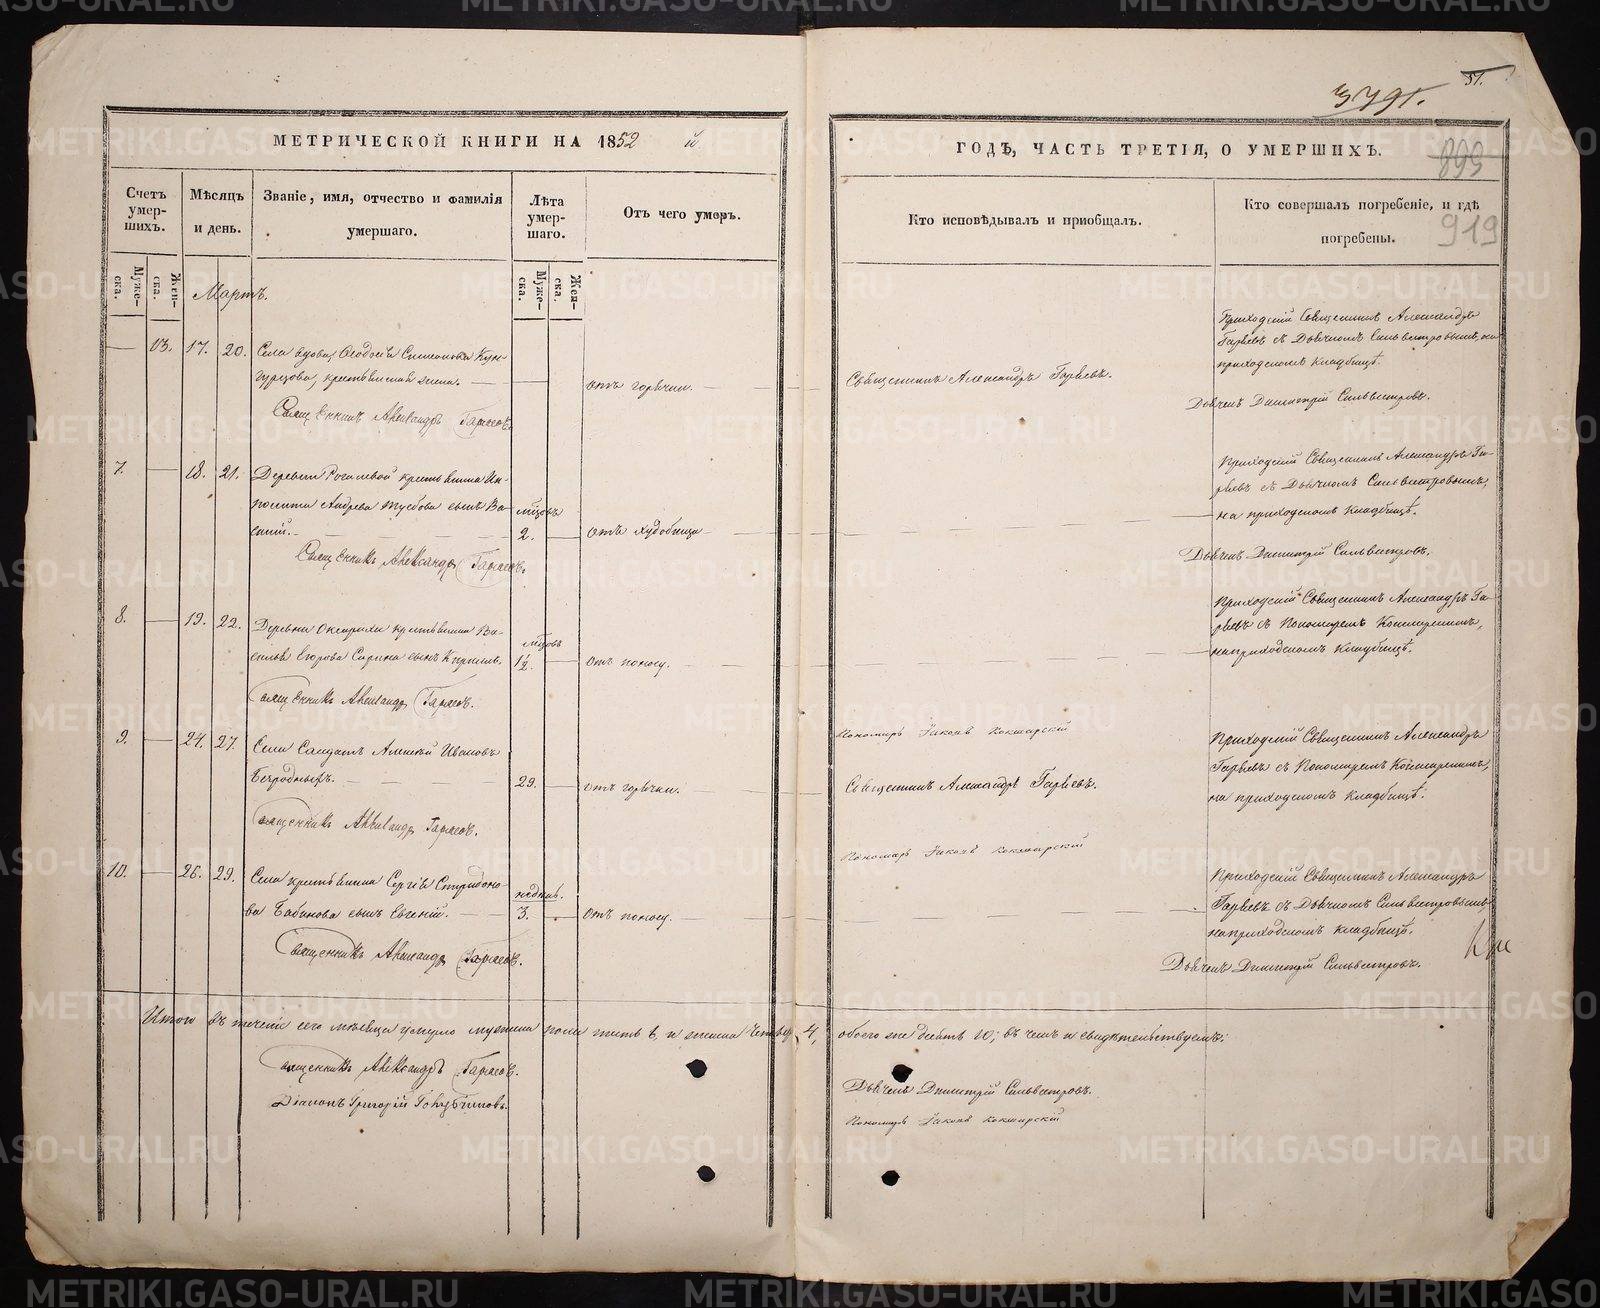 51.
379г.
МЕТРИЧЕСКОЙ КНИГИ НА 1852 й
ГОДѢ, ЧАСТЬ ТРЕТІЯ, О УМЕРШИХЪ.
899
919
Счетъ умер-
шихъ.
Муже-
ска.
Жен-
ска.
Мѣсяцъ
и день.
Званіе, имя, отчество и фамилія
умершаго.
Лѣта
умер-
шаго.
Муже-
ска.
Жен-
ска.
Отъ чего умеръ.
Кто исповѣдывалъ и пріобщалъ.
Кто совершалъ погребеніе, и гдѣ
погребены.
Мартъ.
13. 17. 20. Села вдова Ѳеодосья Симеонова
крестьянская жена.
отъ горячки.
Священникъ Александръ
Приходскій Священникъ Александръ
съ Дьячкомъ Сильвестровымъ, на
приходскомъ кладбищѣ.
Священникъ Александръ
Дьячекъ Димитрій Сильвестровъ.
7. 18. 21. Деревни Рогалевой крестьянина Ип-
полита Андреева сынъ Ва-
силій.
мѣсяцовъ
2.
отъ худобища
Приходскій Священникъ Александръ
съ Дьячкомъ Сильвестровымъ,
на приходскомъ кладбищѣ.
Священникъ Александръ
Дьячекъ Димитрій Сильвестровъ.
8. 19. 22. Деревни крестьянина Ва-
силья Егорова сынъ Кириллъ.
мѣсяцовъ
1/2.
отъ поносу.
Приходскій Священникъ Александръ
съ Пономаремъ Кокшарскимъ,
на приходскомъ кладбищѣ.
Священникъ Александръ
Пономарь Іаковъ Кокшарскій
9. 24. 27. Села Солдатъ Алексѣй Ивановъ
Безродныхъ.
29.
отъ горячки.
Священникъ Александръ
Приходскій Священникъ Александръ
съ Пономаремъ Кокшарскимъ,
на приходскомъ кладбищѣ.
Священникъ Александръ
Пономарь Іаковъ Кокшарскій
10. 26. 29. Села крестьянина Сергія Спиридоно-
ва Бабинова сынъ Евгеній.
недель.
3.
отъ поносу.
Приходскій Священникъ Александръ
съ Дьячкомъ Сильвестровымъ,
на приходскомъ кладбищѣ.
Священникъ Александръ
Дьячекъ Димитрій Сильвестровъ.
Итого въ теченіе сего мѣсяца умерло мужеска пола шесть 6, и женска четыре 4, обоего же десять 10; въ чемъ и свидѣтельствуемъ:
Священникъ Александръ
Діаконъ Григорій
Дьячекъ Димитрій Сильвестровъ.
Пономарь Іаковъ Кокшарскій
METRIKI.GASO-URAL.RU